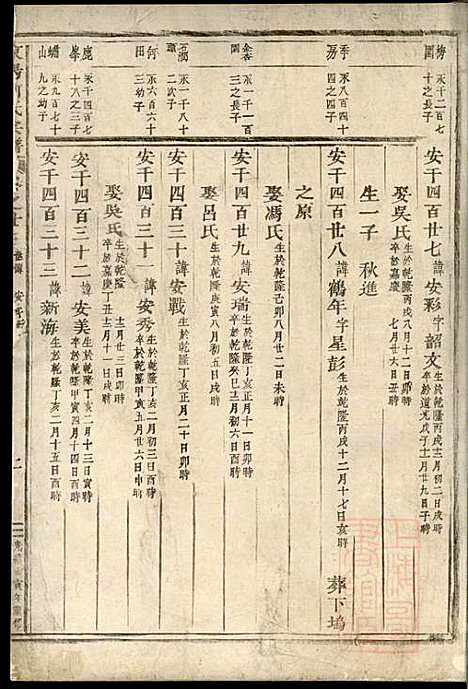 梅園
永千二百七十之長子
安千四百廿七諱安彩字韶文
生於乾隆丙戌十二月初二日戌時
卒於道光戊子十二月廿九日子時
娶吳氏
生於乾隆丙戌八月十二日卯時
卒於嘉慶七月廿六日丑時
生一子 秋進
季
永八百四十四之四子
安千四百廿八諱鶴年字星彭
生於乾隆丙戌十二月十七日亥時
葬下塢
之原
娶馮氏
生於乾隆己卯八月廿二日未時
金杏園
永一千一百三之長子
安千四百廿九諱安瑞
生於乾隆丁亥正月十一日卯時
卒於乾隆癸巳三月初六日酉時
娶呂氏
生於乾隆庚寅八月初五日戌時
永一千八十二次子
安千四百三十諱安戰
生於乾隆丁亥正月二十日卯時
何田
永六百六十三幼子
安千四百三十一諱安秀
生於乾隆丁亥二月初三日酉時
卒於乾隆甲寅五月廿六日申時
娶吳氏
生於乾隆十二月廿三日卯時
卒於嘉慶丁丑十二月十一日戌時
鹿峯
永千四百七十八之三子
安千四百三十二諱安美
生於乾隆丁亥二月十三日寅時
卒於乾隆甲寅四月十四日酉時
山
永九百七十九之幼子
安千四百三十三諱新海
生於乾隆丁亥二月十五日酉時